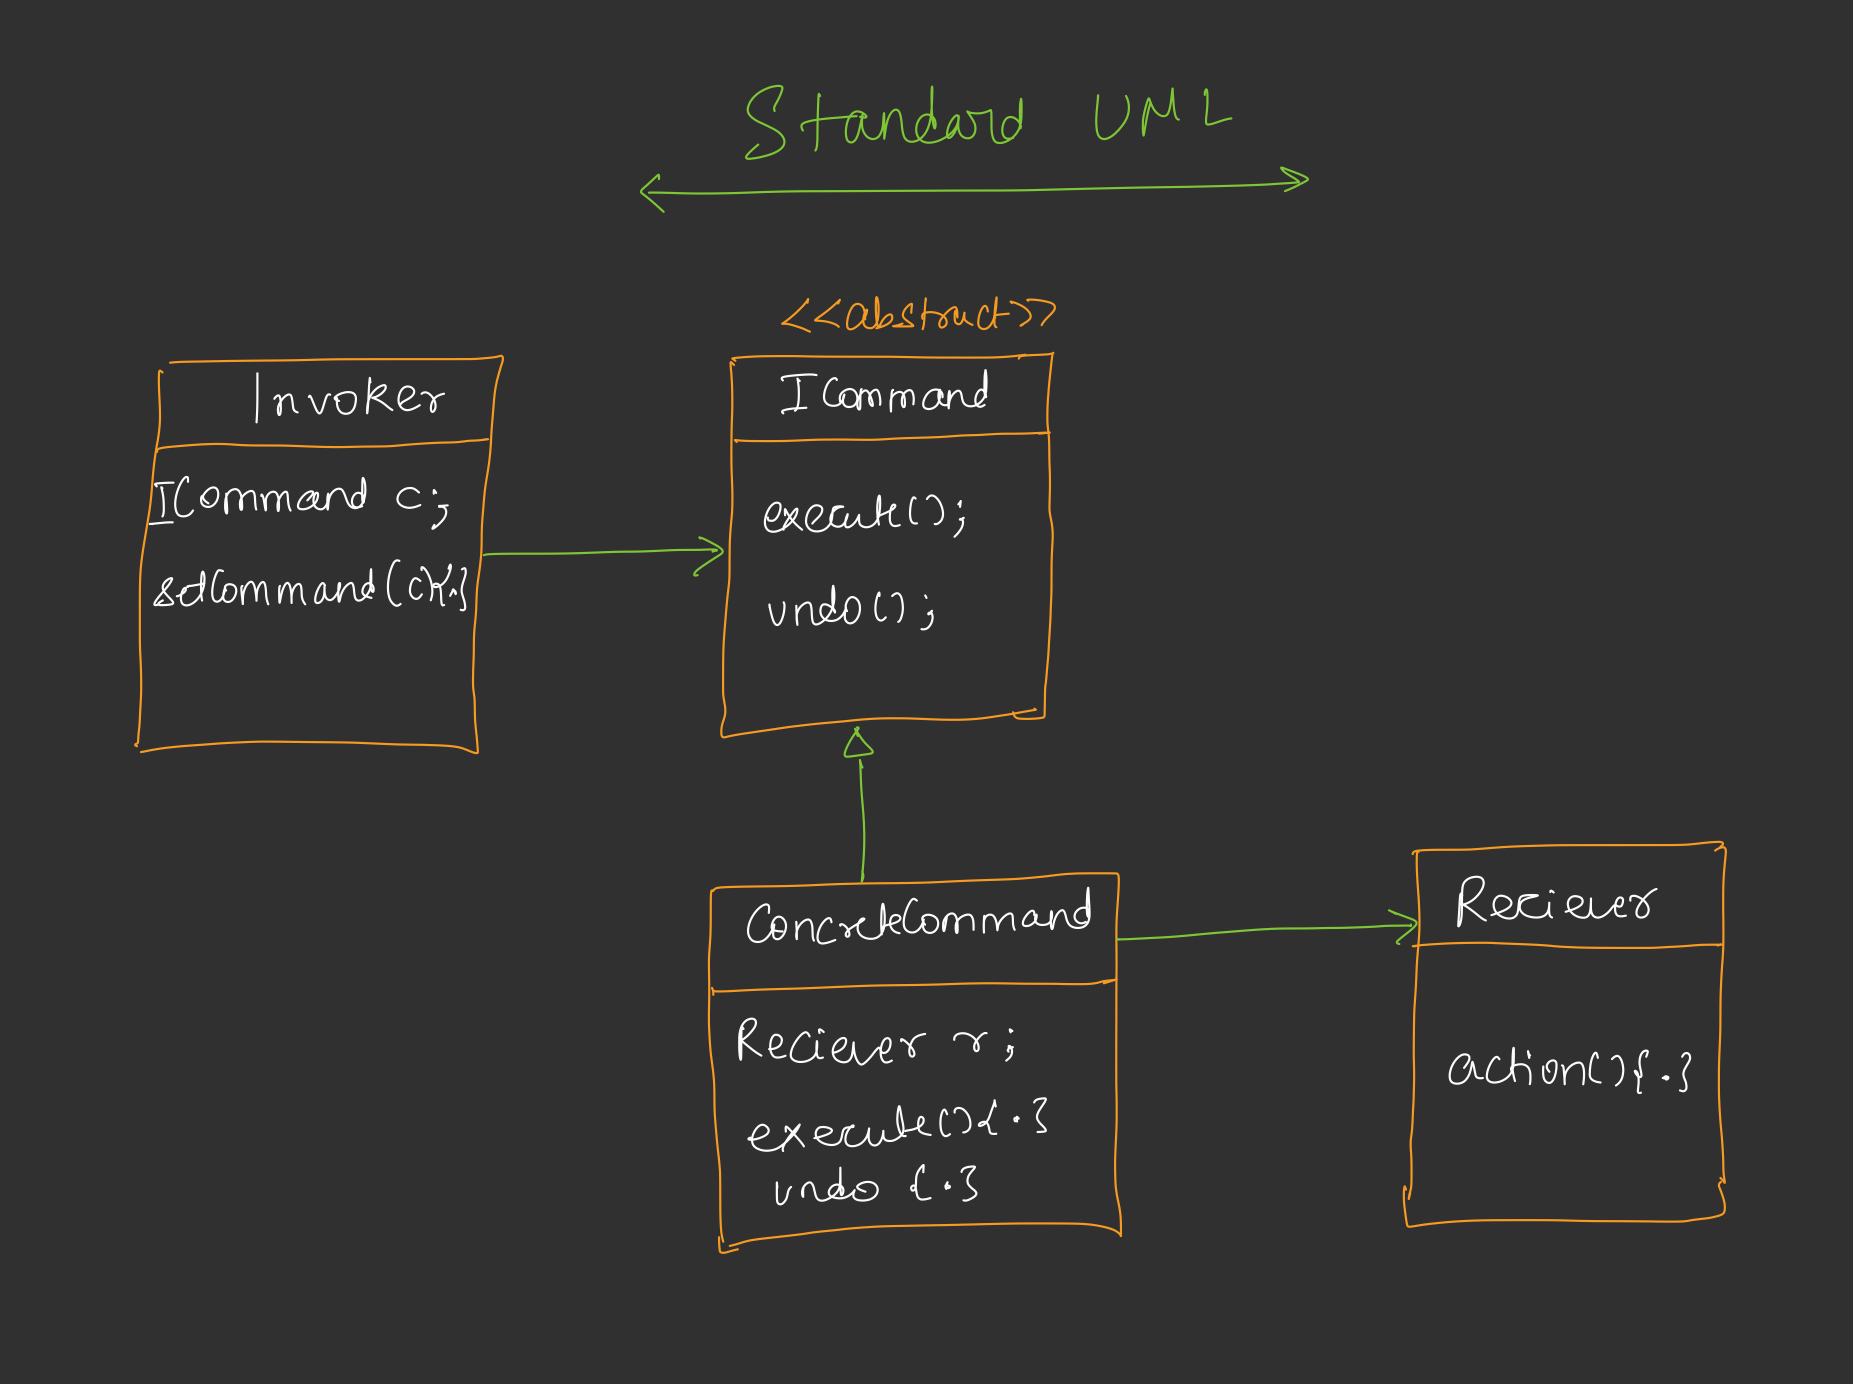 Standard UML
<<abstract>>
Invoker
ICommand c;
setCommand(c){.}
ICommand
execute();
undo();
ConcreteCommand
Reciever r;
execute(){.}
undo {.}
Reciever
action(){.}